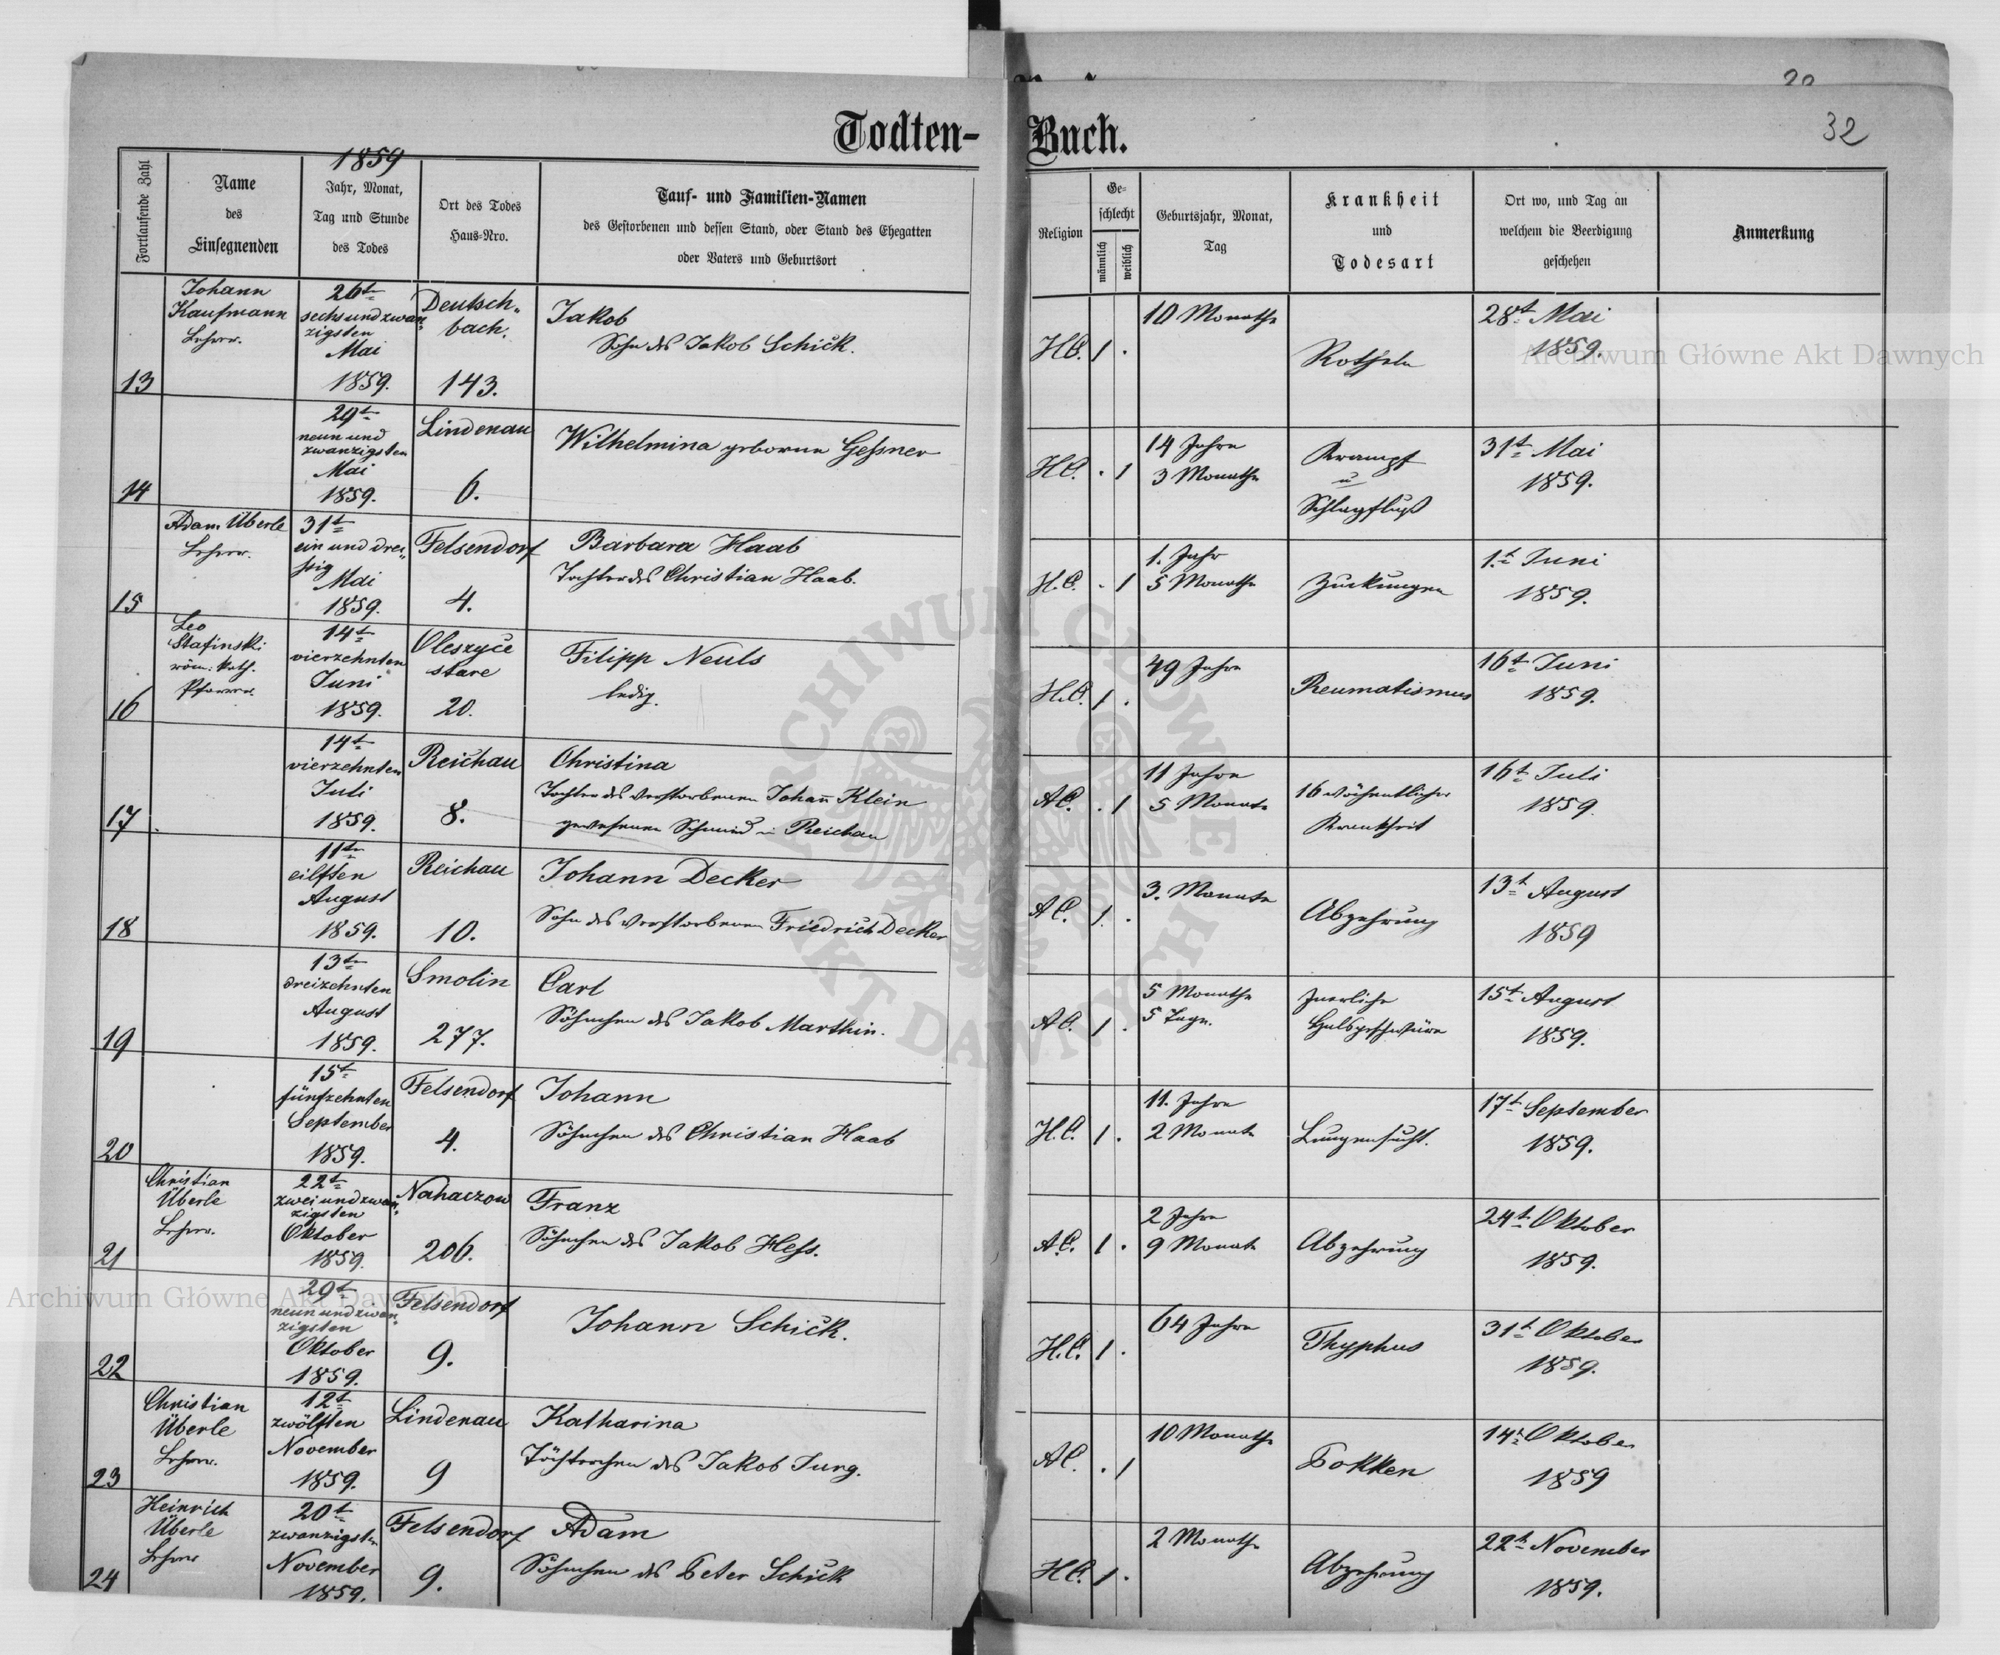 32
Todten-Buch.
1859
Fortlaufende Zahl
Name
des
Einsegnenden
Jahr, Monat,
Tag und Stunde
des Todes
Ort des Todes
Haus-Nro.
Tauf- und Familien-Namen
des Gestorbenen und dessen Stand, oder Stand des Ehegatten
oder Vaters und Geburtsort
Religion
Ge-
schlecht
männlich
weiblich
Geburtsjahr, Monat,
Tag
Krankheit
und
Todesart
Ort wo, und Tag an
welchem die Beerdigung
geschehen
Anmerkung
13
Johann
Kaufmann
Lehrer.
26t
sechsundzwan
zigsten
Mai
1859.
Deutsch-
bach.
143.
Jakob
Sohn des Jakob Schick.
HC. 1 .
10 Monathe
Rötheln
28t Mai
1859.
14
29t
neun und
zwanzigsten
Mai
1859.
Lindenau
6.
Wilhelmina geborene Geßner
HC. . 1
14 Jahre
3 Monathe
Krampf
u
Schlagfluß
31t Mai
1859.
15
Adam Überle
Lehrer.
31t
ein und drei-
ßig
Mai
1859.
Felsendorf
4.
Barbara Haab
Tochter des Christian Haab.
H.C. . 1
1. Jahr
5 Monathe
Zuckungen
1.t Juni
1859.
16
Leo
Stafinski
röm: kath.
Pfarrer.
14t
vierzehnten
Juni
1859.
Oleszyce
stare
20.
Filipp Neuls
ledig.
H.C. 1 .
49 Jahre
Reumatismus
16t Juni
1859.
17
14t
vierzehnten
Juli
1859.
Reichau
8.
Christina
Tochter des verstorbenen Johann Klein
gewesenen Schmied in Reichau
AC. . 1
11 Jahre
5 Monate
16 wöchentlicher
Krankheit
16t Juli
1859.
18
11te
eilften
August
1859.
Reichau
10.
Johann Decker
Sohn des verstorbenen Friedrich Decker
AC. 1. .
3. Monate
Abzehrung
13t August
1859
19
13te
dreizehnten
August
1859.
Smolin
277.
Carl
Söhnchen des Jakob Marthin.
AC. 1 .
5 Monathe
5 Tage.
Halsgeschwüre
15t August
1859.
20
15t
fünfzehnten
September
1859.
Felsendorf
4.
Johann
Söhnchen des Christian Haab
H.C. 1 .
11. Jahre
2 Monate
Lungensucht.
17t September
1859.
21
Christian
Überle
Lehrer.
22t
zwei und zwan
zigsten
Oktober
1859.
Nahaczow
206.
Franz
Söhnchen des Jakob Heß.
A.C. 1 .
2 Jahre
9 Monate
Abzehrung
24t Oktober
1859.
22
29t
neun und zwan
zigsten
Oktober
1859.
Felsendorf
9.
Johann Schick.
H.C. 1 .
64 Jahre
Thyphus
31t Oktober
1859.
23
Christian
Überle
Lehrer.
12t
zwölften
November
1859.
Lindenau
9
Katharina
Töchterchen des Jakob Jung.
AC. . 1
10 Monathe
Pokken
14t Oktober
1859
24
Heinrich
Überle
Lehrer
20t
zwanzigsten
November
1859.
Felsendorf
9.
Adam
Söhnchen des Peter Schick
HC. 1 .
2 Monathe
Abzehrung
22t November
1859.
Archiwum Główne Akt Dawnych
Archiwum Główne Akt Dawnych
ARCHIWUM GŁÓWNE AKT DAWNYCH